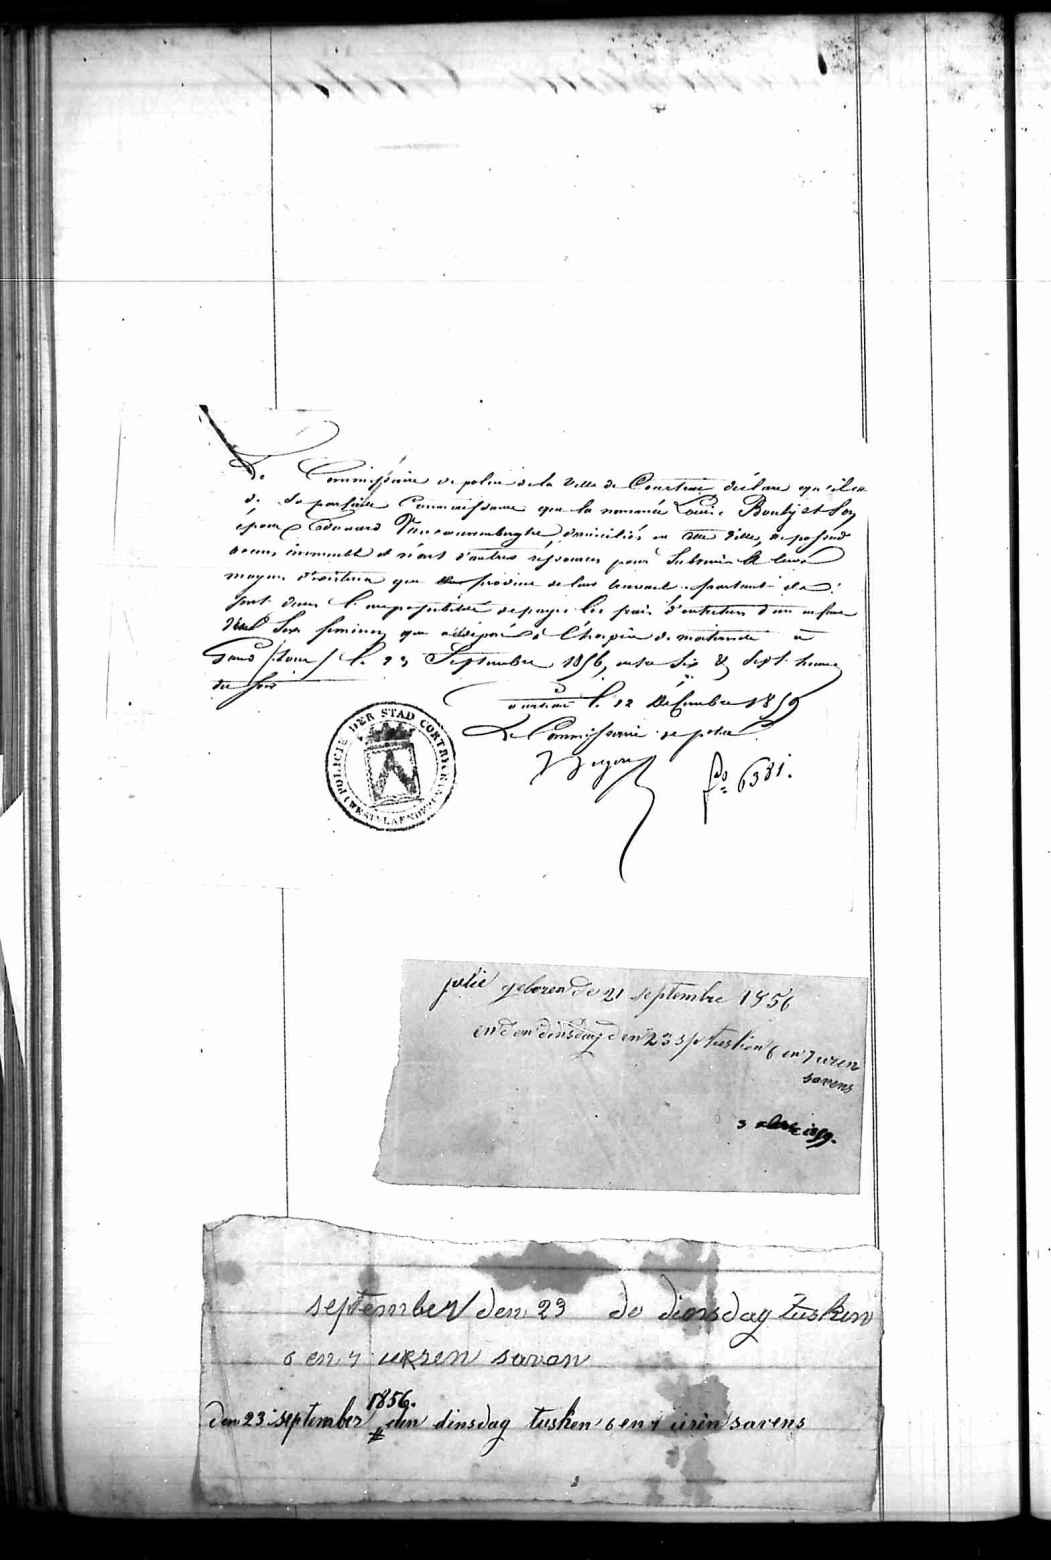 Le Commissaire de police de la Ville de Courtrai déclare qu'il est
de sa parfaite Connaissance que la nommée Louise
épouse Edouard domiciliés en cette Ville, ne possède
aucun immeuble et n'ont d'autres ressources pour subvenir à leurs
moyens d'existence que provient de leur travail partant ils
sont dans l'impossibilité de payer les frais d'entretien d'un enfant
du Sexe féminin que a déposé à l'hospice de maternité à
Gand /tour/ le 23 Septembre 1856, entre Six & Sept heures
du soir
Courtrai le 12 Décembre 1859
Le Commissaire de police
fo 6381.
POLICIE DER STAD CORTRYK (WEST-VLAENDEREN)
julie geboren de 21 septembre 1856
en den dinsdag den 23 sp tusken 6 en 7 uren
savens
3
september den 23 de diensdag tusken
6 en 7 urren savon
1856.
den 23 september # den dinsdag tusken 6 en 7 uren savens